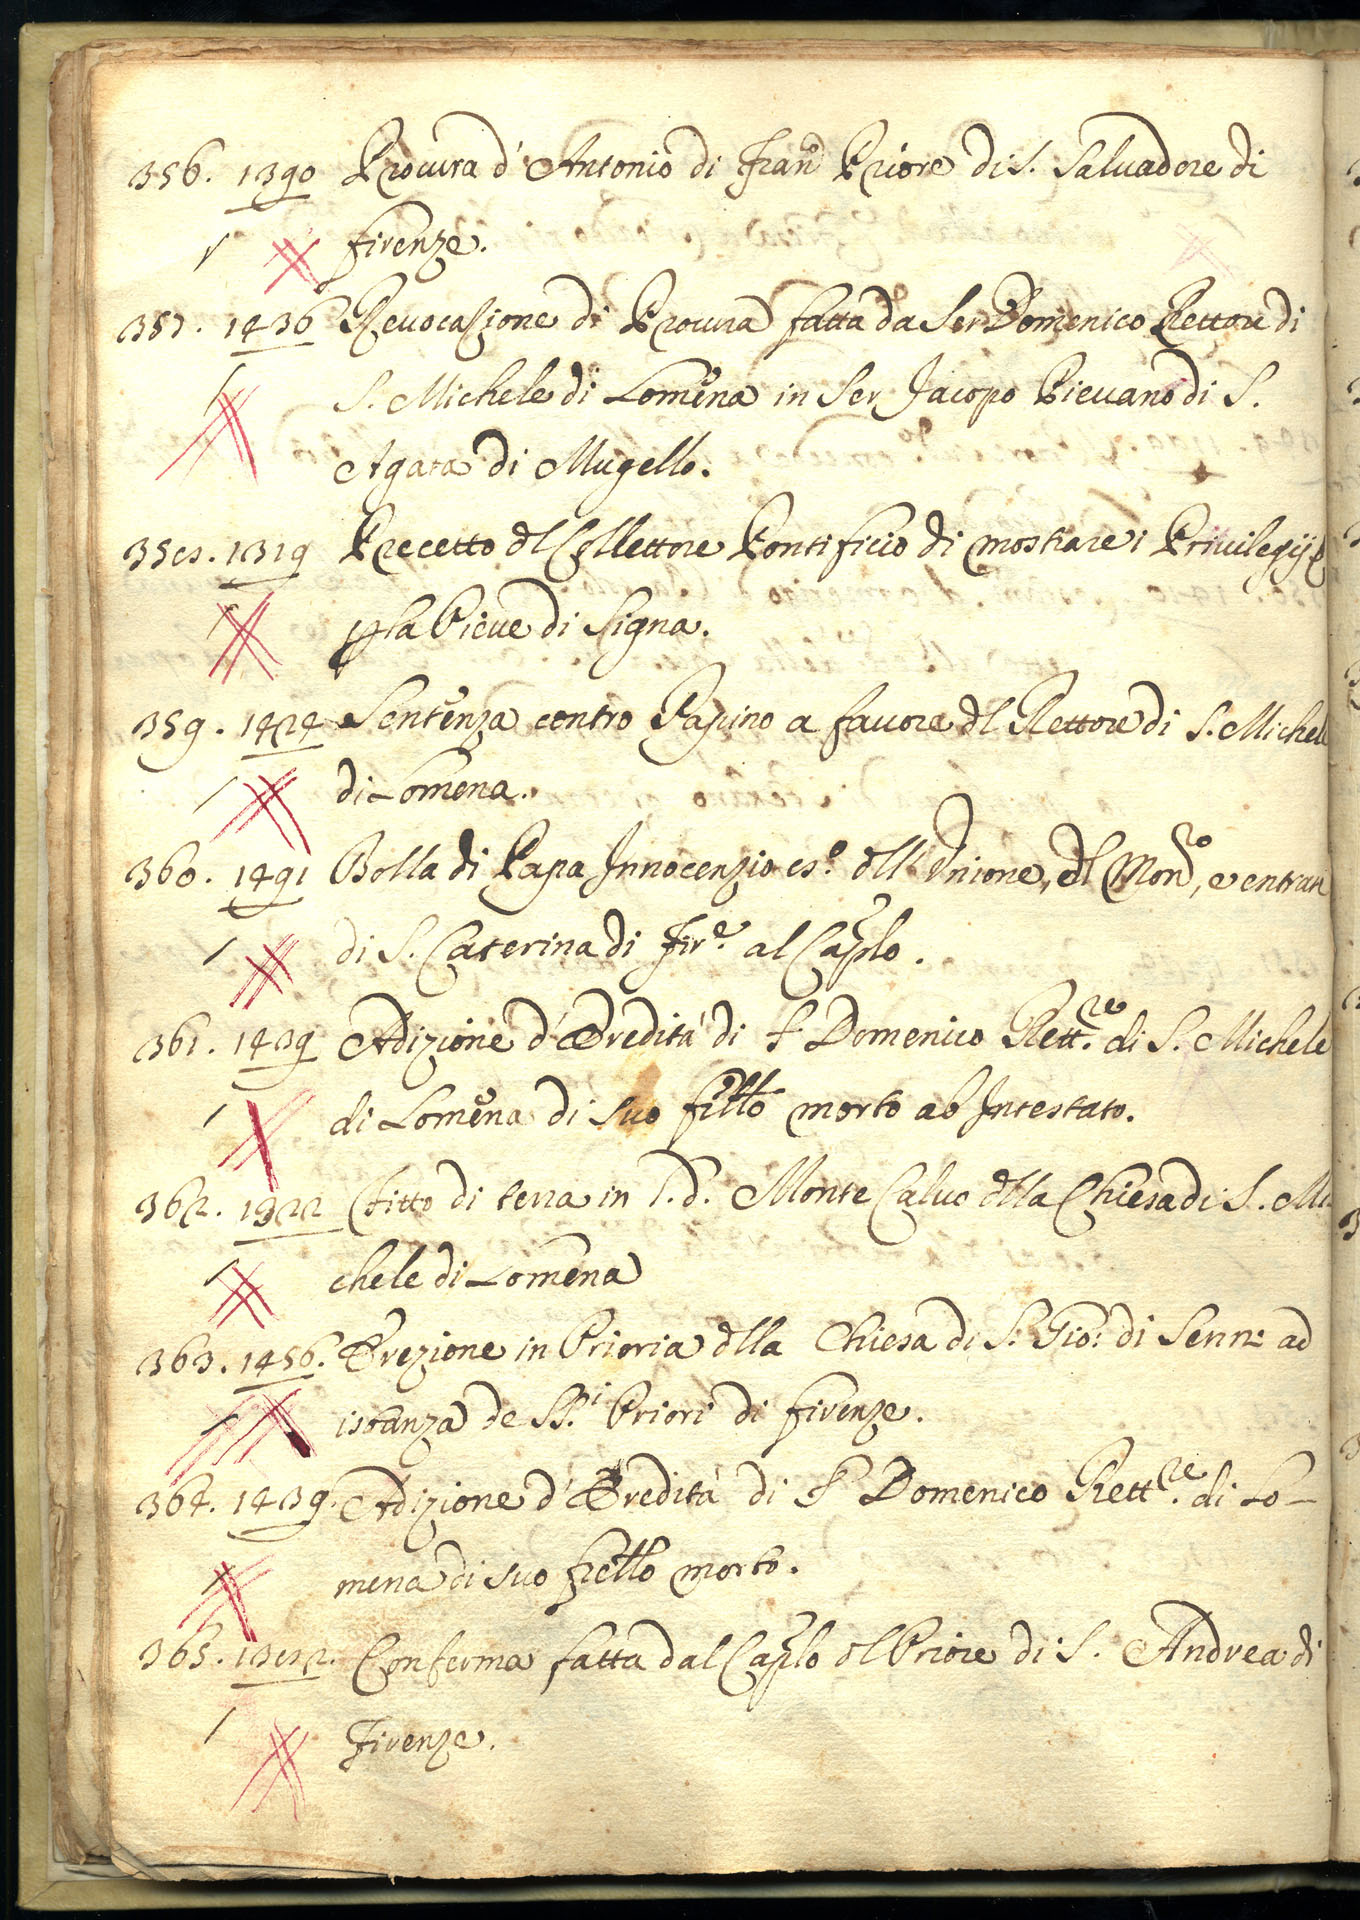 356. 1390 Procura d'Antonio di Fran.o Priore di S. Salvadore di
Firenze.
357. 1436 Revocazione di Procura fatta da Ser Domenico Rettore di
S. Michele di Lomena in Ser Jacopo Pievano di S.
Agata di Mugello.
358. 1319 Precetto dl Collettore Pontificio di mostrare i Privilegij p
p la Pieve di Signa.
359. 1424 Sentenza contro Papino a favore dl Rettore di S. Michele
di Lomena.
360. 1491 Bolla di Papa Innocenzio 8.o dll'Unione, dl Mon.ro, e entrate
di S. Caterina di Fir.e al Caplo.
361. 1439 Adizione d'Eredità di S. Domenico Rett.re di S. Michele
di Lomena di suo fratllo morto ab Intestato.
362. 1322 Affitto di terra in l.d. Monte Calvo dlla Chiesa di S. Mi-
chele di Lomena
363. 1456. Erezione in Prioria dlla Chiesa di S. Gio: di Senn: ad
istanza de SS.i Priori di Firenze.
364. 1439. Adizione d'Eredità di S. Domenico Rett.re di Lo-
mena di suo frello morto.
365. 1382. Conferma fatta dal Caplo dl Priore di S. Andrea di
Firenze.